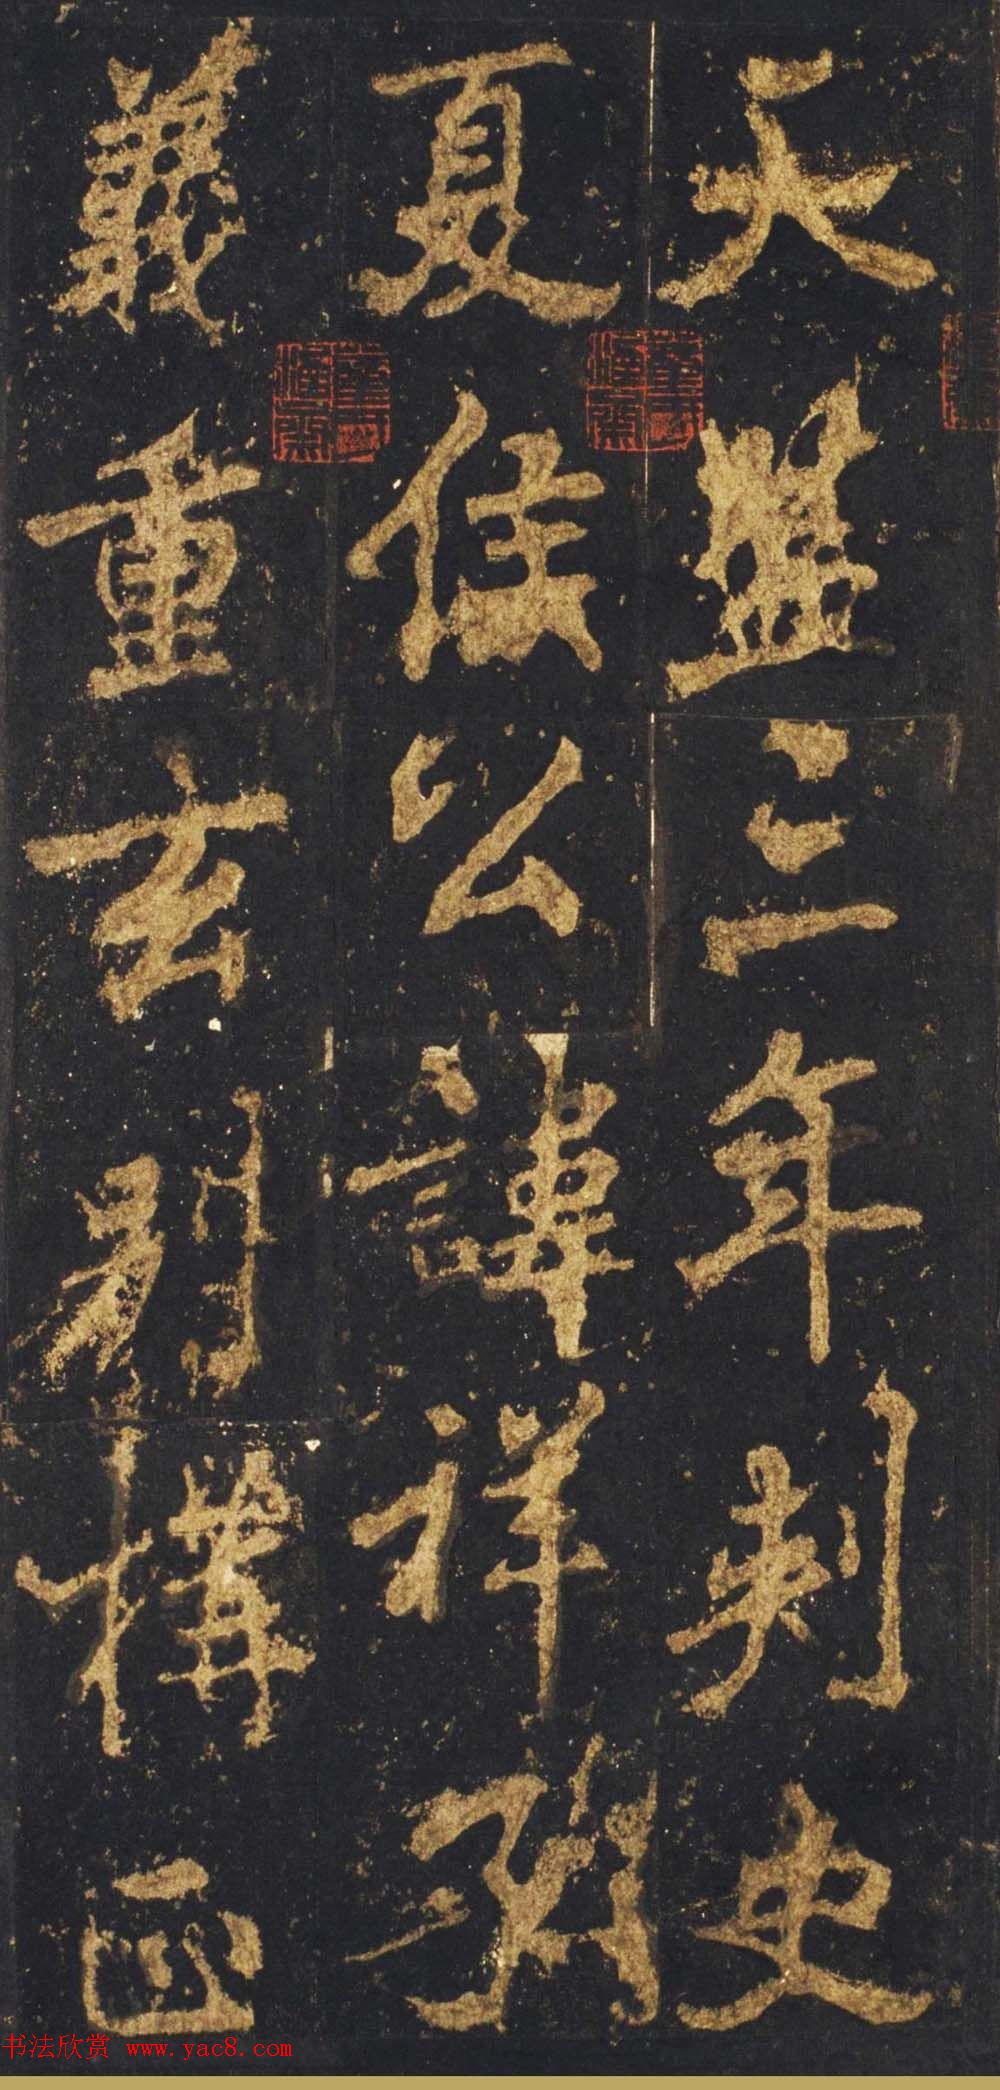 天監三年刺史
夏侯公諱祥了
義重玄別構正
书法欣赏 www.yac8.com